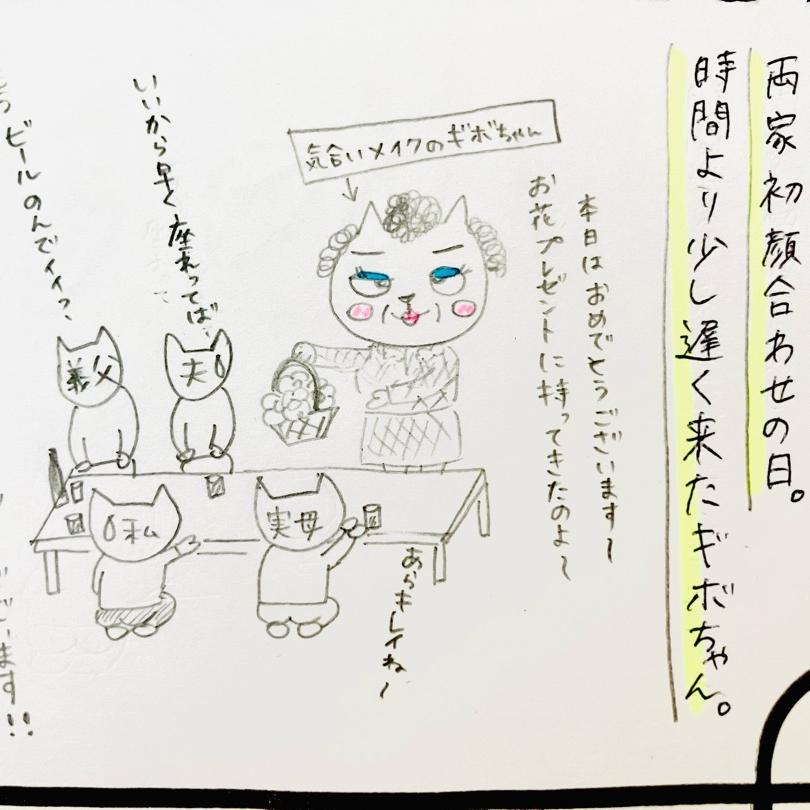 両家初顔合わせの日。
時間より少し遅く来たギボちゃん。
本日はおめでとうございます〜
お花プレゼントに持ってきたのよ〜
気合いメイクのギボちゃん
いいから早く座れってば、
ビールのんでイイっ、
義父
夫
私
実母
あらキレイね〜
ございます!!